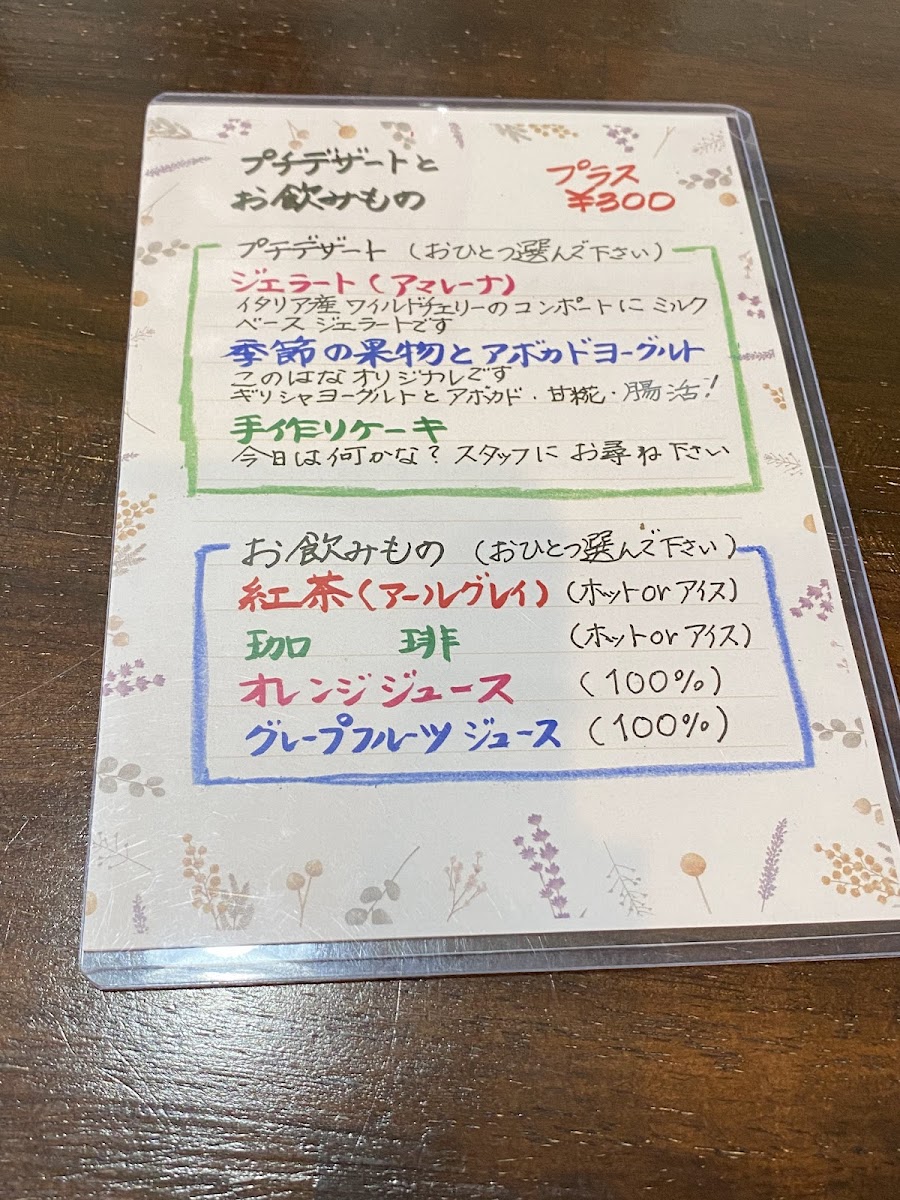 プチデザートと
お飲みもの
プラス
¥300
プチデザート (おひとつ選んで下さい)
ジェラート (アマレーナ)
イタリア産 ワイルドチェリーのコンポートに ミルク
ベース ジェラートです
季節の果物とアボカドヨーグルト
このはなオリジナルです
ギリシャヨーグルトとアボカド・甘糀・腸活!
手作りケーキ
今日は何かな? スタッフに お尋ね下さい
お飲みもの (おひとつ選んで下さい)
紅茶(アールグレイ) (ホットorアイス)
珈 琲 (ホットorアイス)
オレンジジュース (100%)
グレープフルーツ ジュース (100%)